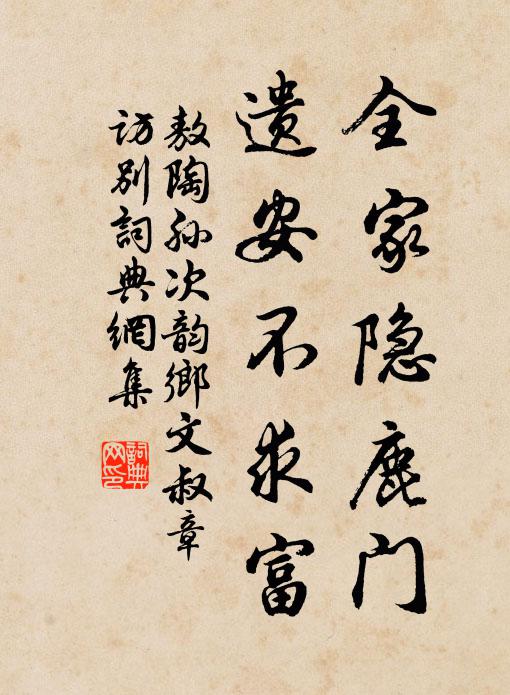 全家隐鹿门
遗安不求富
敖陶孙次韵鄉文叔章
访别詞典網集
詞典网印